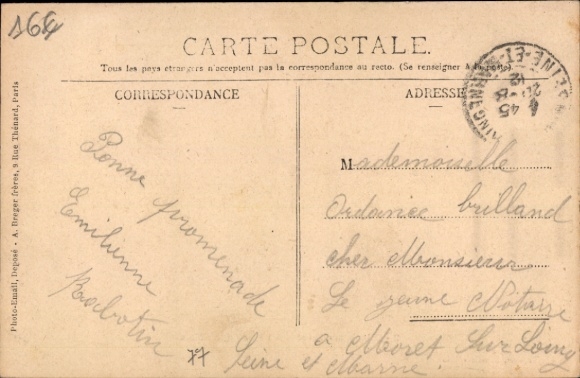 166
CARTE POSTALE.
Tous les pays étrangers n'acceptent pas la correspondance au recto. (Se renseigner à la poste)
CORRESPONDANCE
ADRESSE
SEINE-ET-MARNE
Bonne promenade
Emilienne
Rabotin
Mademoiselle
brilland
cher Monsieur
Le jeune Notaire
a Moret Sur Loing
77 Seine et Marne
Photo-Email, Deposé - A. Breger frères, 9 Rue Thénard, Paris